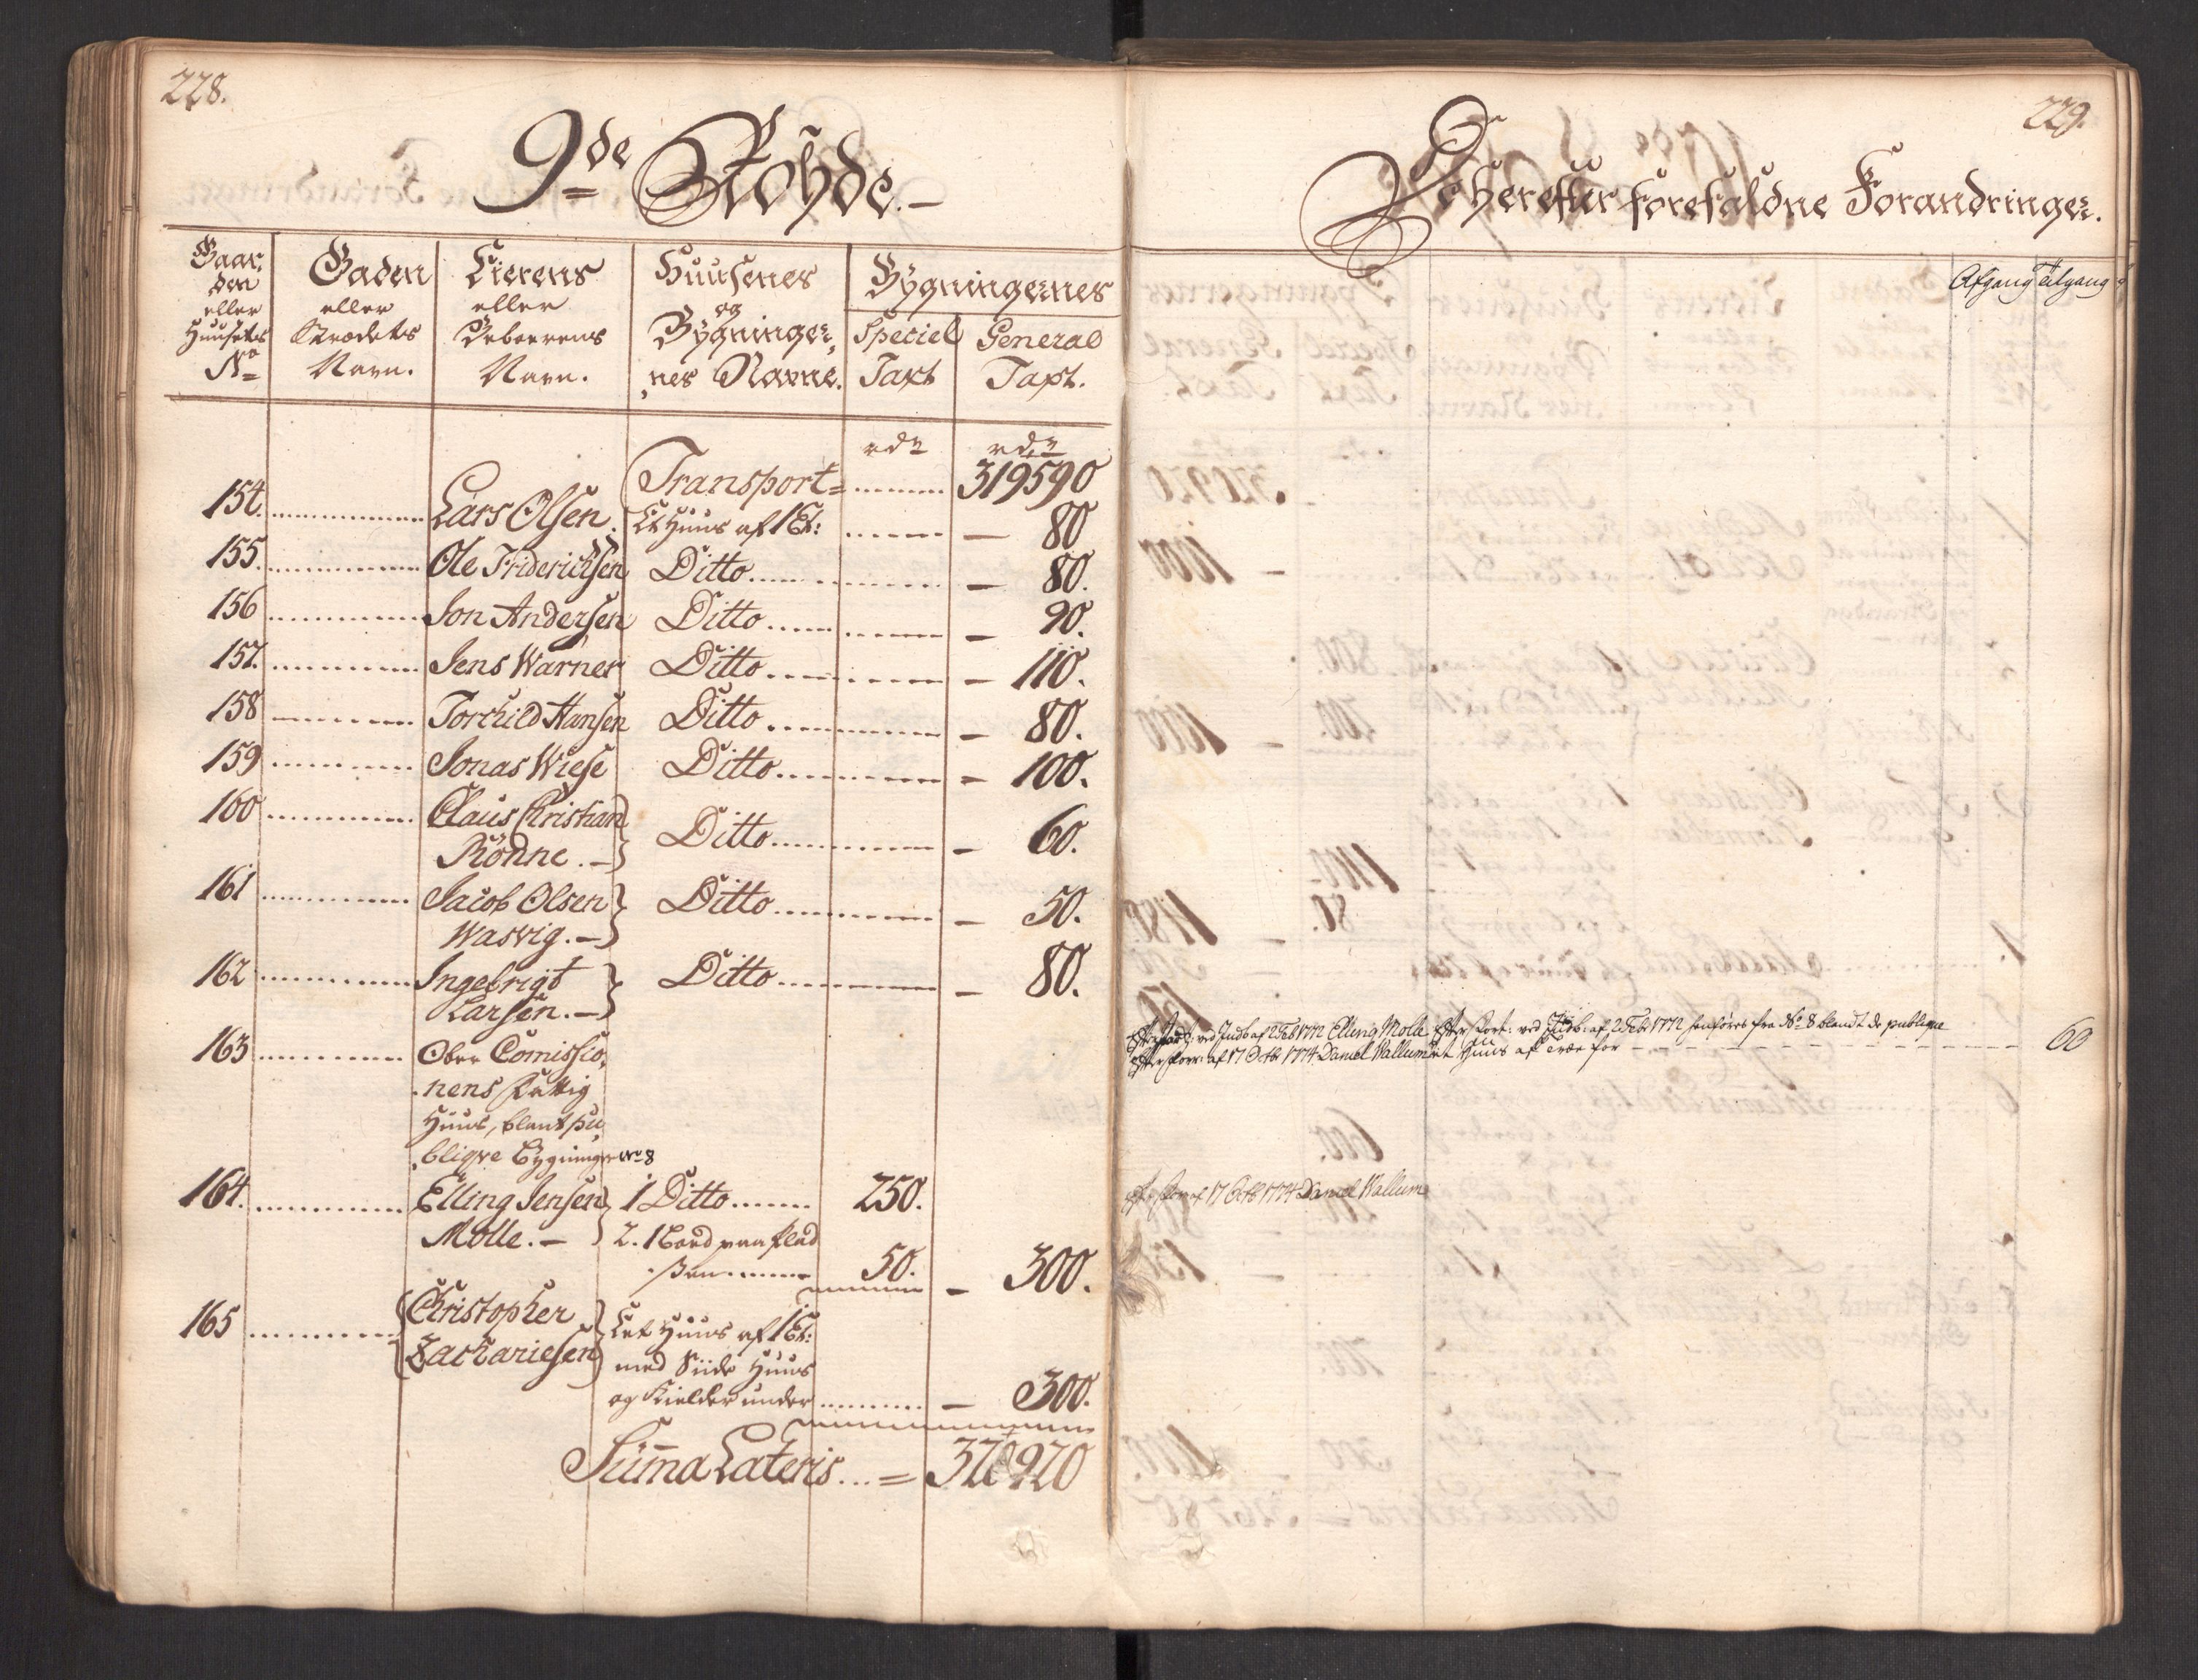 228.
9de Rohde.
Gaar,
den
eller
Huusets
No
Gaden
eller
Strædets
Navn.
Eierens
eller
Beboerens
Navn.
Huusenes
og
Bygninger,
,nes Navne.
Bygningernes
Speciel
Taxt
General
Taxt.
rdr
rdr
Transport= 319590
154. Lars Olsen. Et Huus af 1 Et: — 80
155. Ole Friderichsen Ditto — 80.
156 Jon Andersen Ditto — 90.
157. Jens Warner Ditto — 110.
158 Torchild Hansen Ditto — 80.
159 Jonas Wiese Ditto — 100.
160 Claus Christian
Rönne.— Ditto — 60.
161 Jacob Olsen
Wasvig.— Ditto — 50.
162 Ingebrigt
Larsen.— Ditto — 80.
163 Ober Comissio,
,nens Fattig
Huus, blant pu,
,bliqve Bygninger No 8
164. Elling Jensen 1 Ditto 250.
Molle.— 2. 1 Boed paa Plad
,sen 50. — 300.
165 Christopher
Zachariesen Eet Huus af 1 Et:
med Siide Huus
og Kielder under — 300.
Suma Lateris = 320920
229.
De herefter forefaldne Forandringer.
Afgang Tilgang
ved Indb af 2 Feb 1772 Elling Molle Efter Forr: ved Indb: af 2 Feb: 1772 henføres fra No 8 blandt de publiqve
Efter Forr: af 17 Octb 1774 Daniel Wallum et Huus af Træe for — 60
Efter Forr af 17 Octb 1774 Daniel Wallum